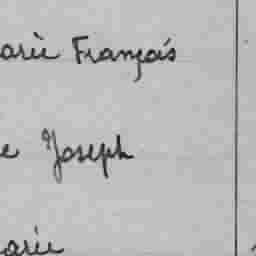 arie Françoís
e Joseph
arie